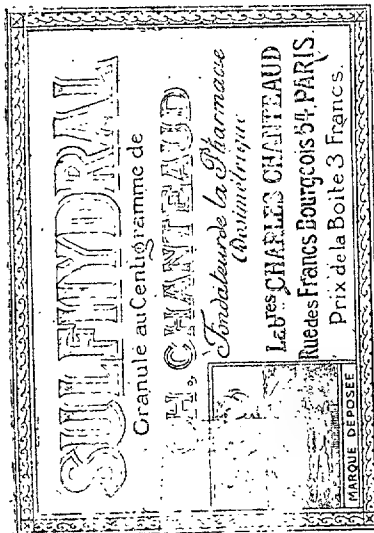 SULFHYDRAL
Granulé au Centigramme de
CH. CHANTEAUD
Fondateur de la Pharmacie
Dosimétrique
Labres CHARLES CHANTEAUD
Rue des Francs Bourgeois 54. PARIS.
Prix de la Boite 3 Francs.
MARQUE DÉPOSÉE